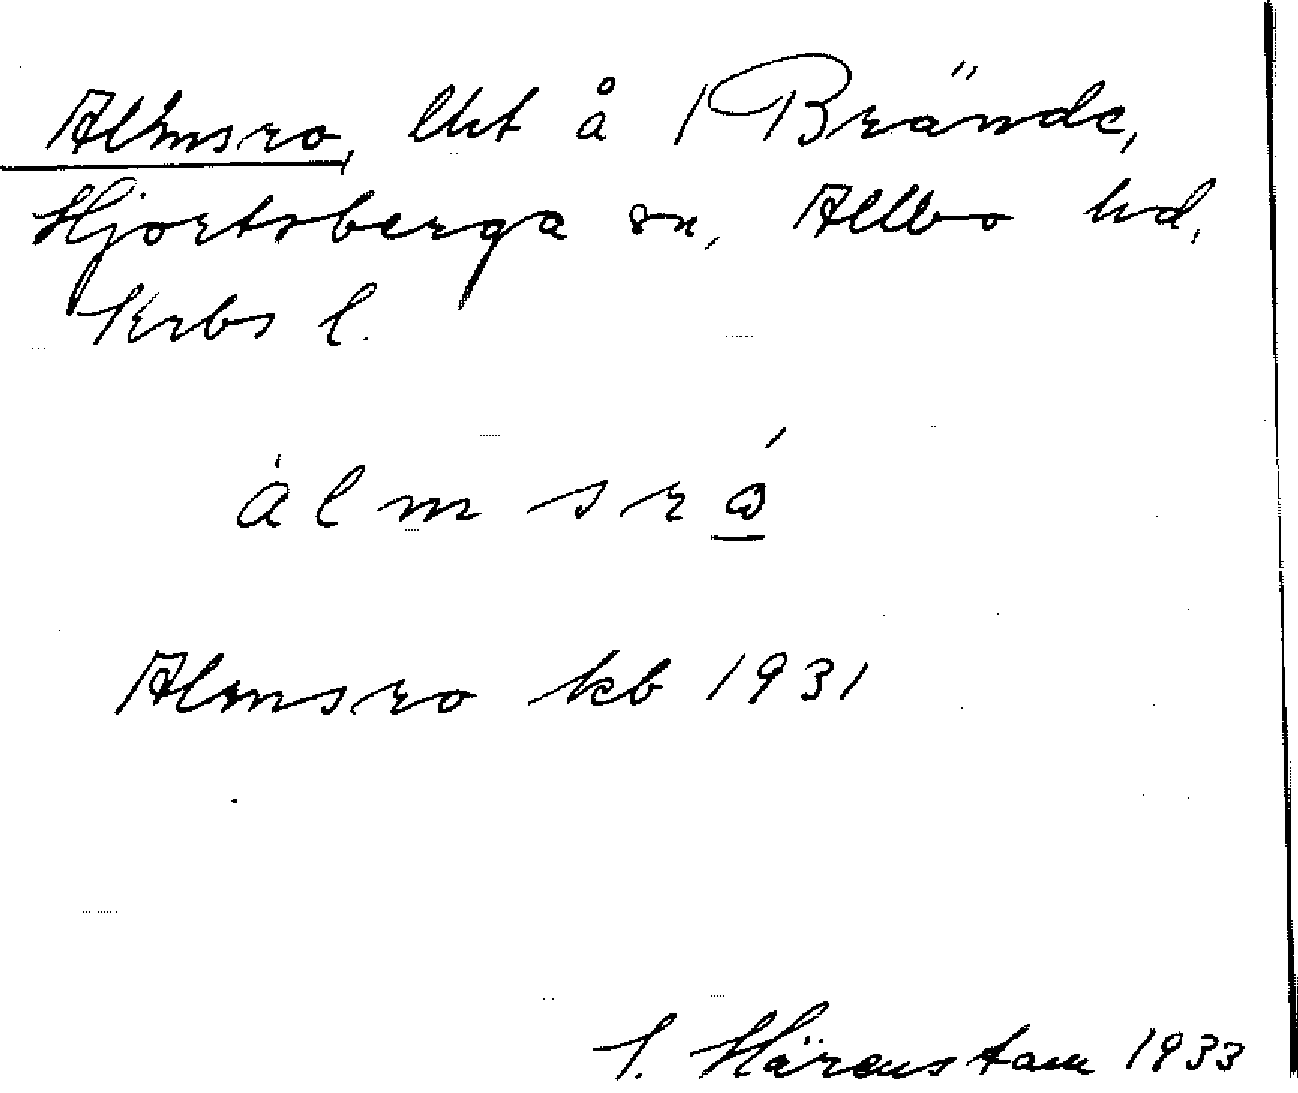 Almsro, lht å Brände,
Hjortsberga sn, Allbo hd,
Krbs l.
álmsró
Almsro kb 1931
I. Härenstam 1933